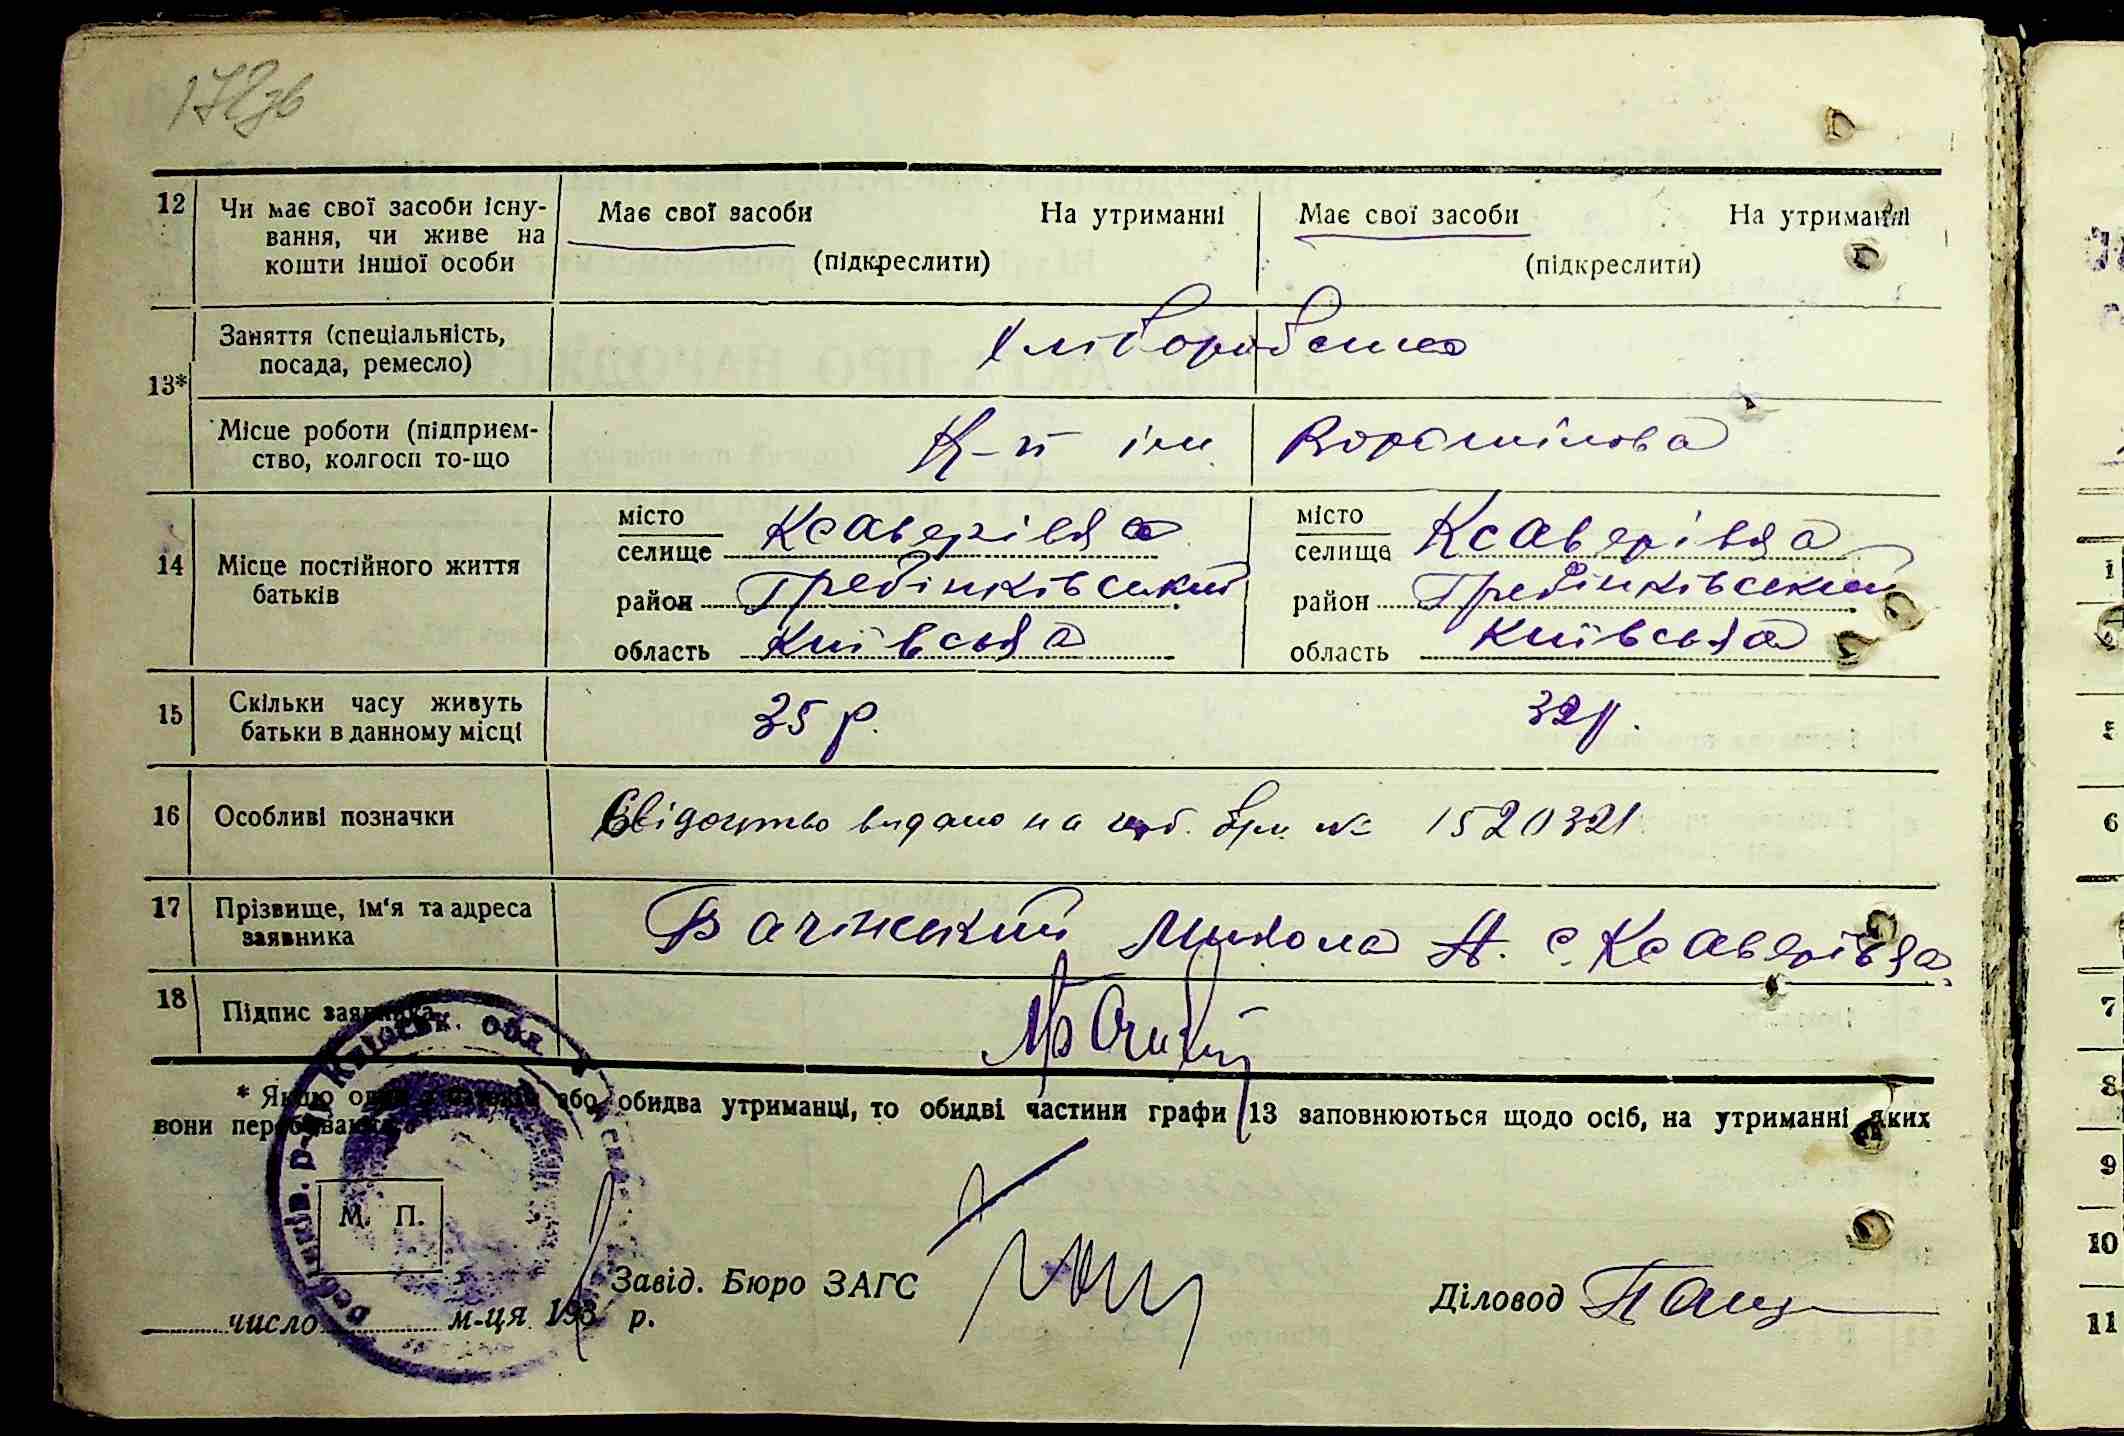 172зв
12 Чи має свої засоби існу- Має свої засоби На утриманні Має свої засоби На утриманні
вання, чи живе на
кошти іншої особи (підкреслити) (підкреслити)
13* Заняття (спеціальність,
посада, ремесло) Хліборобство
Місце роботи (підприєм-
ство, колгосп то-що К-п ім Ворошилова
14 Місце постійного життя
батьків
місто
селище Ксаверівка
район Гребінківський
область Київська
місто
селище Ксаверівка
район Гребінківський
область Київська
15 Скільки часу живуть
батьки в данному місці 35 р. 32 р.
16 Особливі позначки Свідоцтво видано на 1520321
17 Прізвище, ім'я та адреса
заявника Бачінський Микола А. с. Ксаверівка
18 Підпис заявника
* Якщо один з батьків або обидва утриманці, то обидві частини графи 13 заповнюються щодо осіб, на утриманні яких
вони перебувають.
М. П.
Завід. Бюро ЗАГС Діловод
число м-ця 193 р.
6
7
8
9
10
11